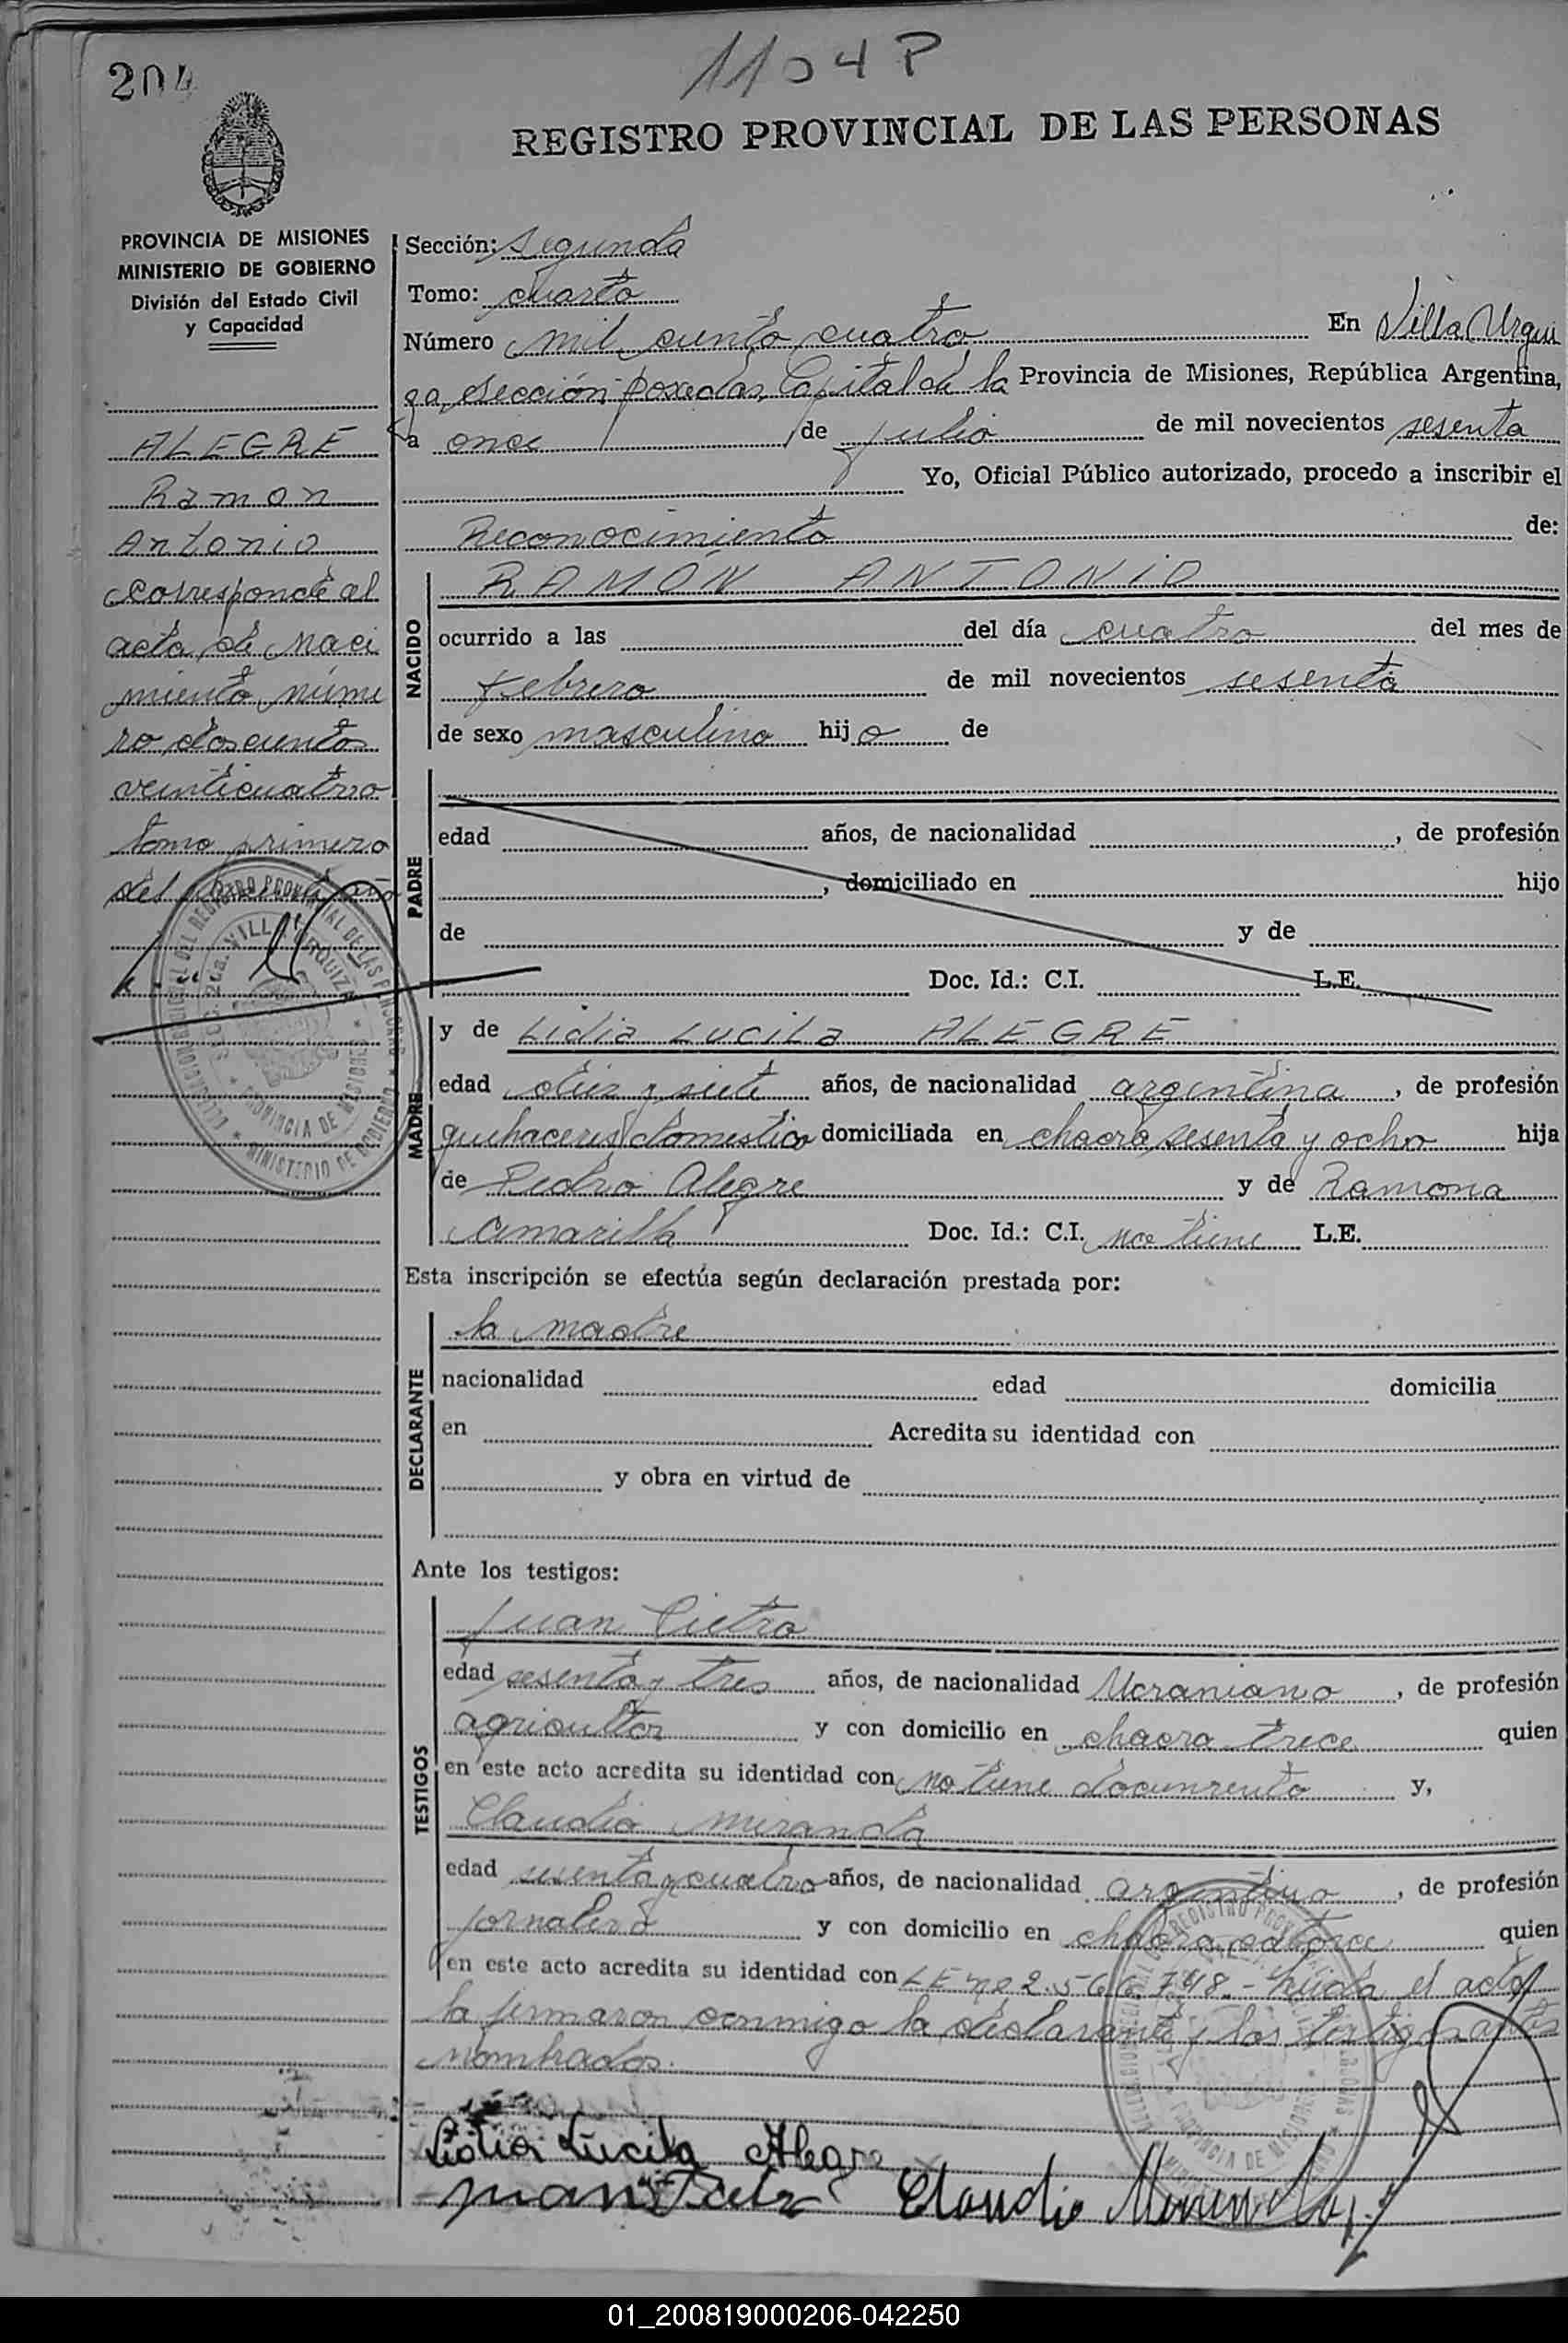 204
1104 P
REGISTRO PROVINCIAL DE LAS PERSONAS
PROVINCIA DE MISIONES
MINISTERIO DE GOBIERNO
División del Estado Civil
y Capacidad
ALEGRE
Ramon
Antonio
corresponde al
acta de naci
miento núme
ro doscientos
veinticuatro
tomo primero
del
Sección: Segunda
Tomo: cuarto
Número mil ciento cuatro En Villa Urqui
za, Sección Posadas, Capital de la Provincia de Misiones, República Argentina,
a once de julio de mil novecientos sesenta
Yo, Oficial Público autorizado, procedo a inscribir el
Reconocimiento de:
NACIDO
RAMÓN ANTONIO
ocurrido a las del día cuatro del mes de
febrero de mil novecientos sesenta
de sexo masculino hijo de
PADRE
edad años, de nacionalidad , de profesión
, domiciliado en hijo
de y de
Doc. Id.: C.I. L.E.
MADRE
y de Lidia Lucila ALEGRE
edad diez y siete años, de nacionalidad argentina, de profesión
quehaceres domestico domiciliada en chacra sesenta y ocho hija
de Pedro Alegre y de Ramona
Amarilla Doc. Id.: C.I. no tiene L.E.
Esta inscripción se efectúa según declaración prestada por:
DECLARANTE
la madre
nacionalidad edad domicilia
en Acredita su identidad con
y obra en virtud de
Ante los testigos:
TESTIGOS
Juan
edad sesenta y tres años, de nacionalidad Ucraniano, de profesión
agricultor y con domicilio en chacra trece quien
en este acto acredita su identidad con no tiene documento y,
Claudio Miranda
edad sesenta y cuatro años, de nacionalidad argentino, de profesión
jornalero y con domicilio en chacra catorce quien
en este acto acredita su identidad con LE nº 2.566.748.- Leída el acta
la firmaron conmigo la declarante y los testigos antes
nombrados.
Lidia Lucila Alegre
Juan
Claudio Miranda
01_200819000206-042250